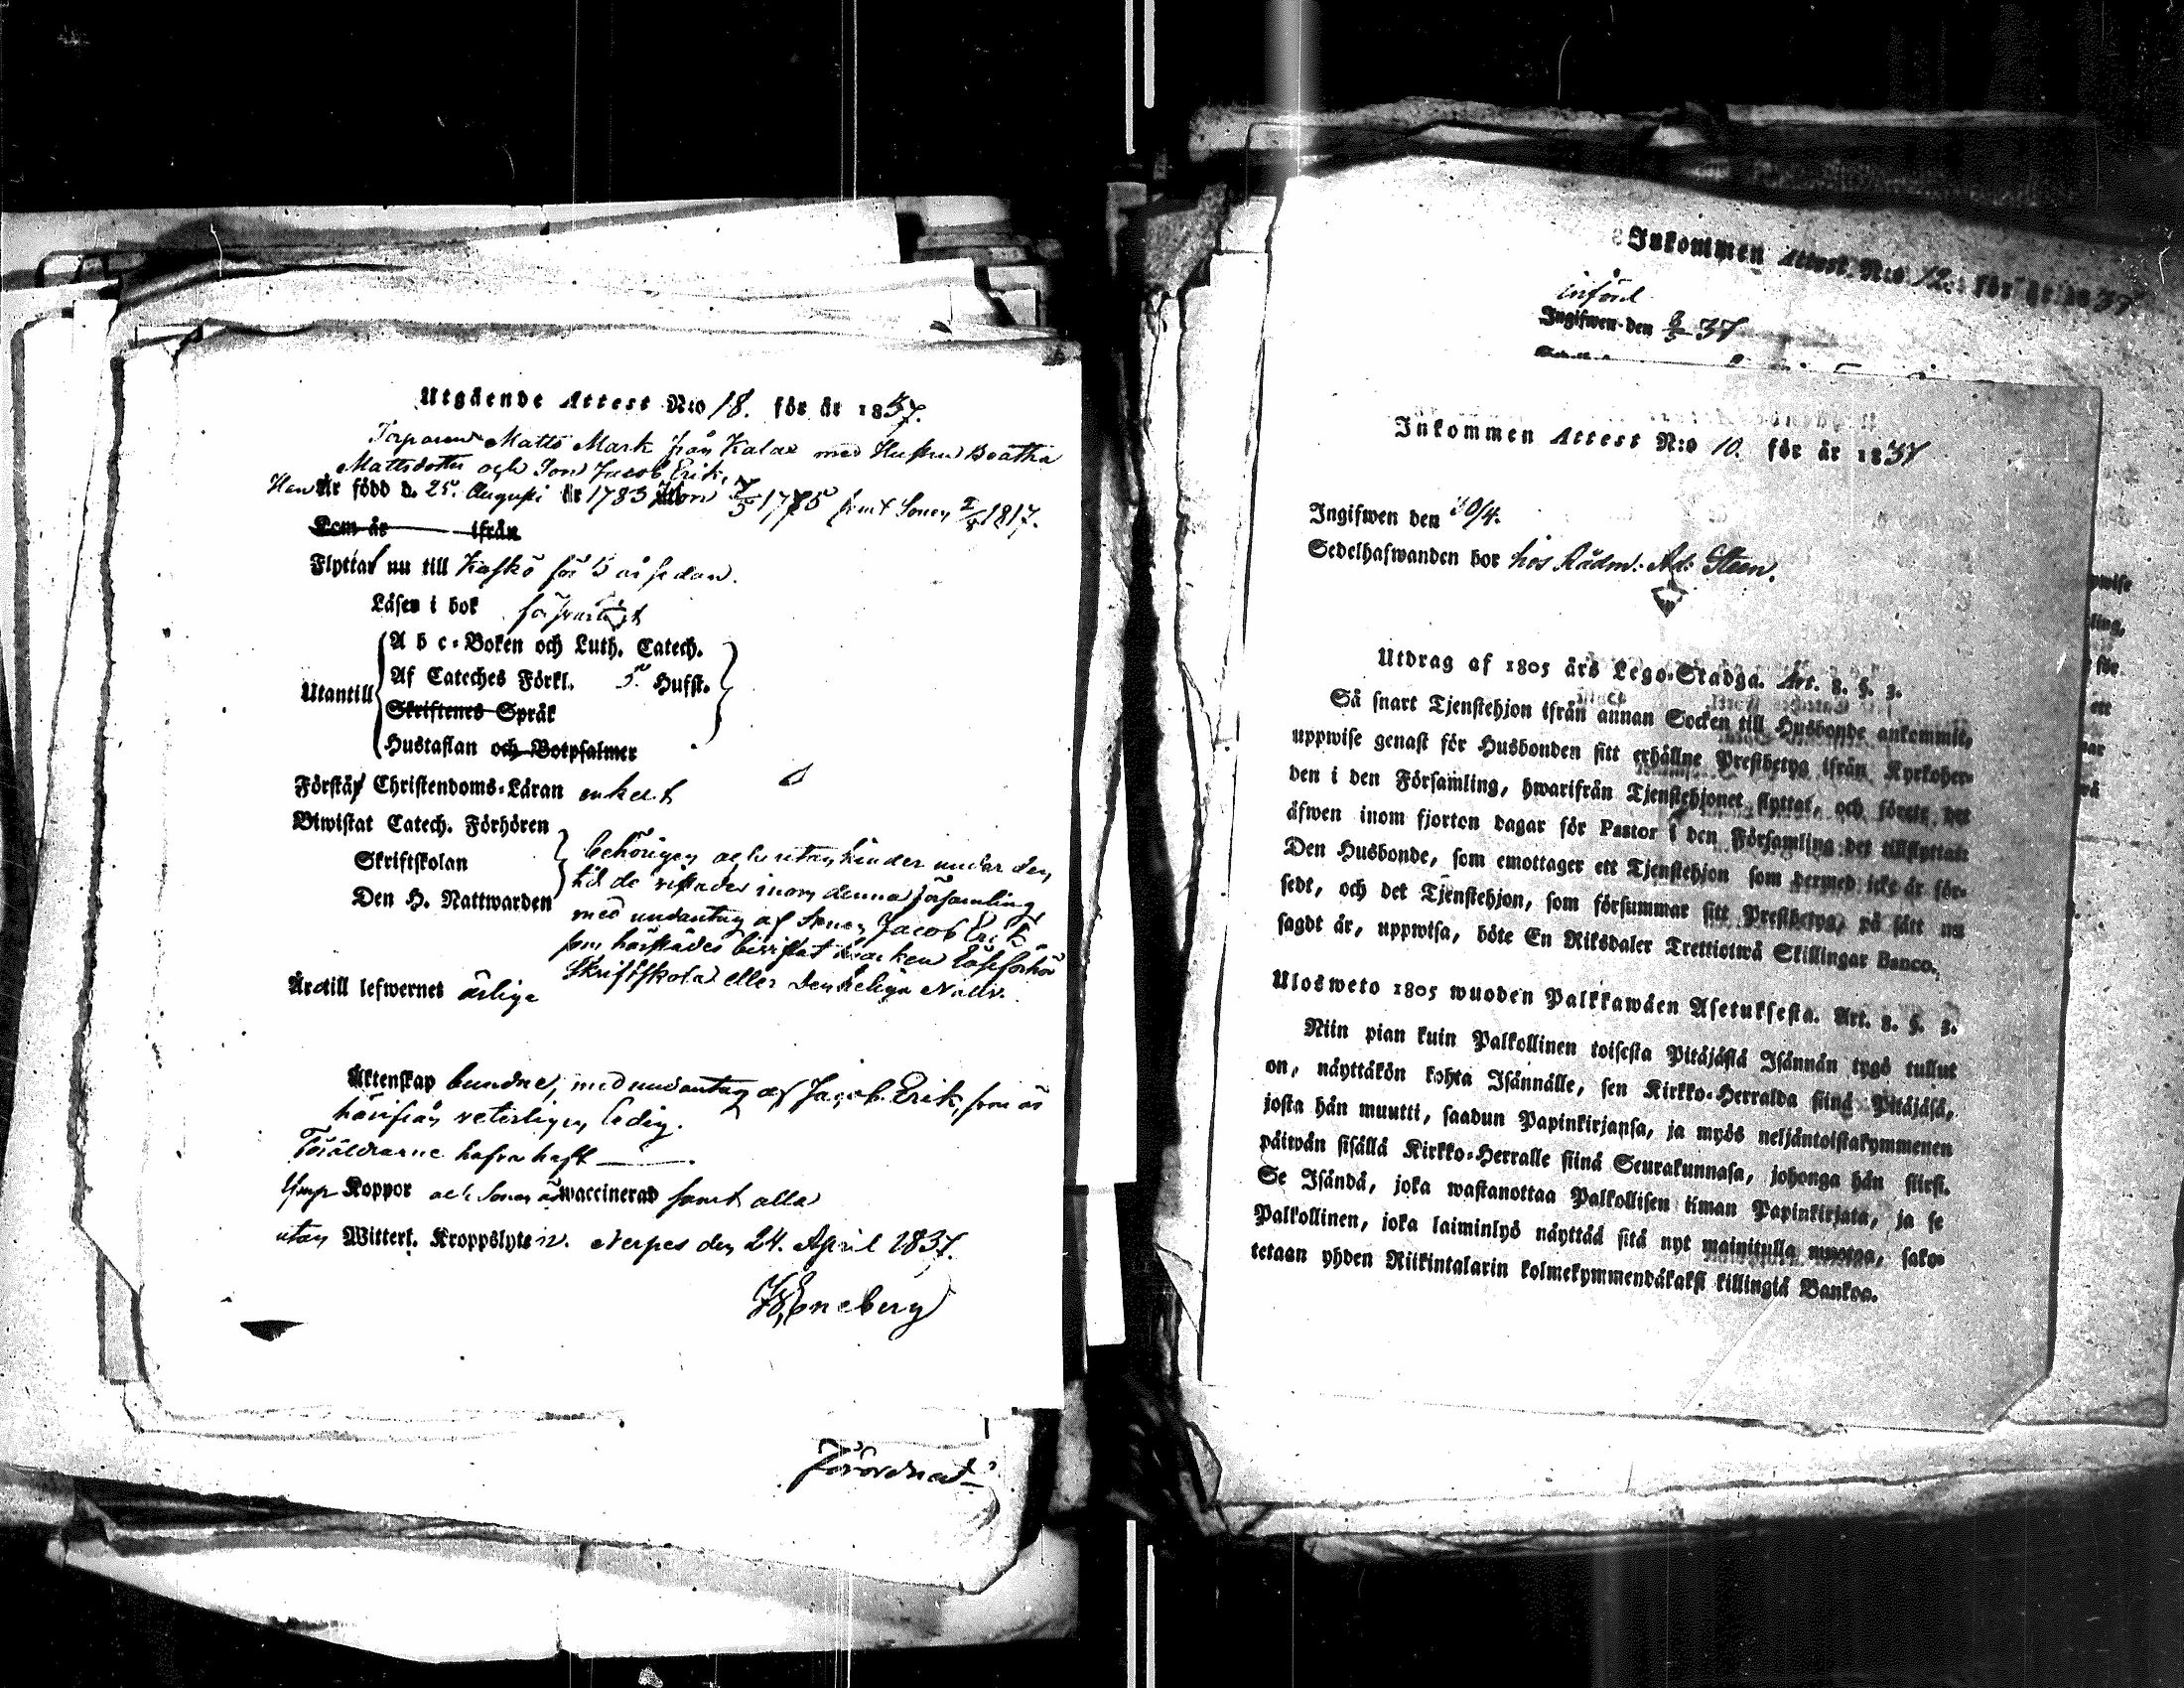 Utgående Attest N:o 18. för år 1837.
Torparen Matts Mark från Kalax med Hustru Beatha
Mattsdotter och Son Jacob Erik,
Han Är född d. 25. Augusti år 1783 Hon 1775 samt Sonen 1817.
Kom år ifrån
Flyttat nu till Kaskö för 5 år sedan.
Läsen i bok försvarligt
Utantill
A b c-Boken och Luth. Catech.
Af Cateches Förkl. 5. Hufst.
Skriftenes Språk
Hustaflan och Botpsalmer
Förstå Christendoms-Läran enkelt
Biwistat Catech. Förhören
Skriftskolan
Den H. Nattwarden
behörigen och utan hinder under den
tid de vistades inom denna församling
med undantag af Sonen Jacob Erik
som härstädes bivistat hvarken Läseförhör
Skriftskola eller Den heliga Nattv.
Är till lefwernet ärlige
Äktenskap bundne, med undantag af Jacob Erik, som är
härifrån veterligen ledig.
Föräldrarne hafva haft
Koppor och Sonen är waccinerad samt alla
utan Witterl. Kroppslyten. Nerpes den 24. April 1837.
Eneberg
Inkommen Attest. N:o 12. för år 1837.
införd
Ingifwen den 37
Inkommen Attest N:o 10. för år 1837
Ingifwen den 30/4.
Sedelhafwanden bor hos Rådm: Ad: Steen.
Utdrag af 1805 års Lego-Stadga. Art. 8. §. 3.
Så snart Tjenstehjon ifrån annan Socken till Husbonde ankommit,
uppwise genast för Husbonden sitt erhållne Prestbetyg ifrån Kyrkoher-
den i den Församling, hwarifrån Tjenstehjonet flyttat, och förete det
äfwen inom fjorton dagar för Pastor i den Församling det tillflyttat:
Den Husbonde, som emottager ett Tjenstehjon som dermed icke är för-
sedt, och det Tjenstehjon, som försummar sitt Prestbetyg, på sätt nu
sagdt är, uppwisa, böte En Riksdaler Trettiotwå Skillingar Banco.
Ulosweto 1805 wuoden Palkkawäen Asetuksesta. Art. 8. §. 3.
Niin pian kuin Palkollinen toisesta Pitäjästä Isännän tygö tullut
on, näyttäkön kohta Isännälle, sen Kirkko-Herralda siinä Pitäjäsä,
josta hän muutti, saadun Papinkirjansa, ja myös neljäntoistakymmenen
päiwän sisällä Kirkko-Herralle siinä Seurakunnasa, johonga hän siirsi.
Se Isändä, joka wastanottaa Palkollisen ilman Papinkirjata, ja se
Palkollinen, joka laiminlyö näyttää sitä nyt mainitulla muotoa, sako-
tetaan yhden Riikintalarin kolmekymmendäkaksi killingiä Bankoa.